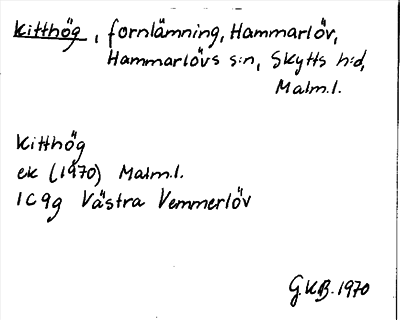 Kitthög, fornlämning, Hammarlöv,
Hammarlövs s:n, Skytts h:d,
Malm.l.
Kitthög
ek (1970) Malm.l.
1C9g Västra Vemmerlöv
G.K.B. 1970